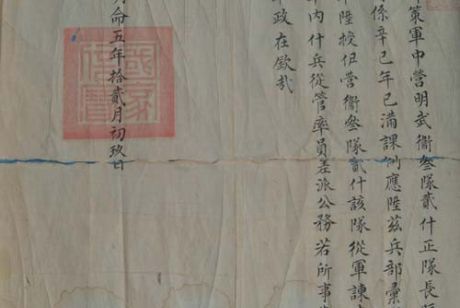 策軍中營明武衛叁隊貳什正隊長
係辛巳年已滿課例應陞茲兵部彙
陞授伹營衛叁隊貳什該隊從軍諫
内什兵從管率員差派公務若所事
政在欽哉
命五年拾貳月初玖日